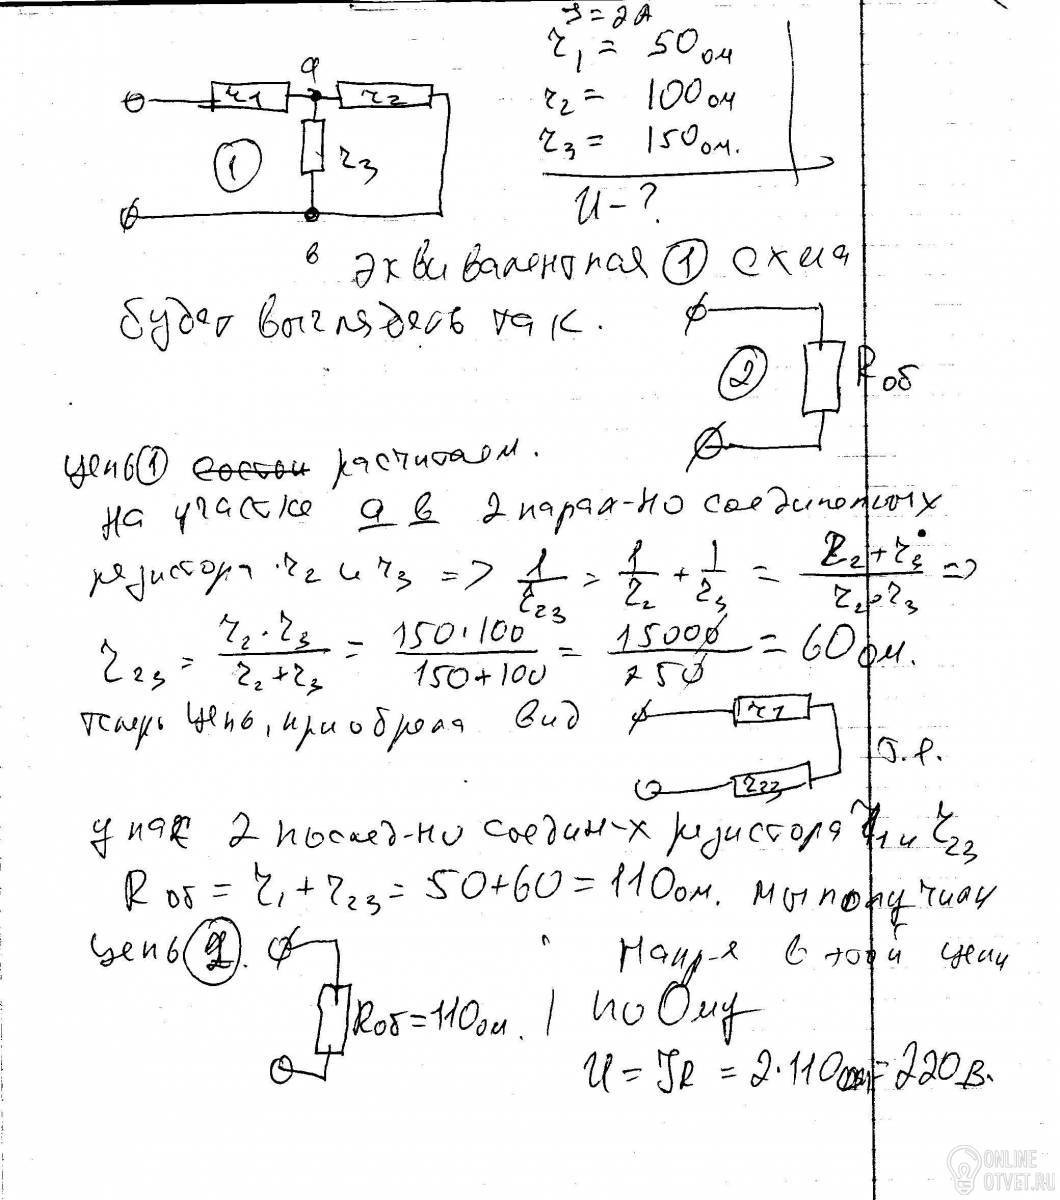 J = 2А
r1 = 50 ом
r2 = 100 ом
r3 = 150 ом.
U - ?
r1
а
r2
1
r3
в
Эквивалентная 1 схема
будет выглядеть так.
2
Rоб
цепь 1 состои расчитаем.
На участке а в 2 парал-но соединенных
резистора r2 и r3 => 1/r23 = 1/r2 + 1/r3 = r2 + r3 / r2 · r3 =>
r23 = r2 · r3 / r2 + r3 = 150 · 100 / 150 + 100 = 15000 / 250 = 60 ом.
теперь цепь, приобрела вид
r1
r23
т.е.
у нас 2 послед-но соедин-х резистора r1 и r23
Rоб = r1 + r23 = 50 + 60 = 110 ом. мы получили
цепь 2.
Rоб = 110 ом.
Напр-я в этой цепи
по Ому
U = JR = 2 · 110 = 220 В.
ONLINE
OTVET.RU